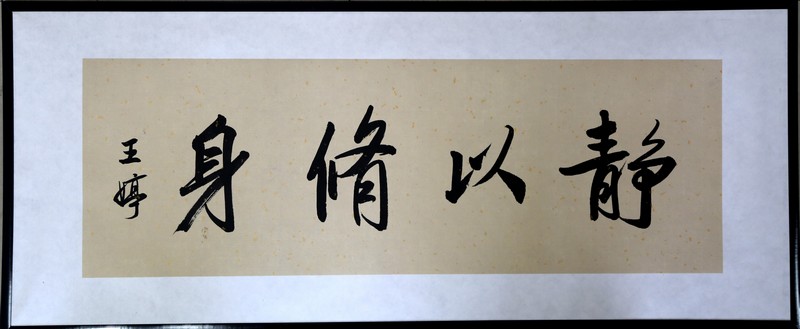 静以脩身
王婷